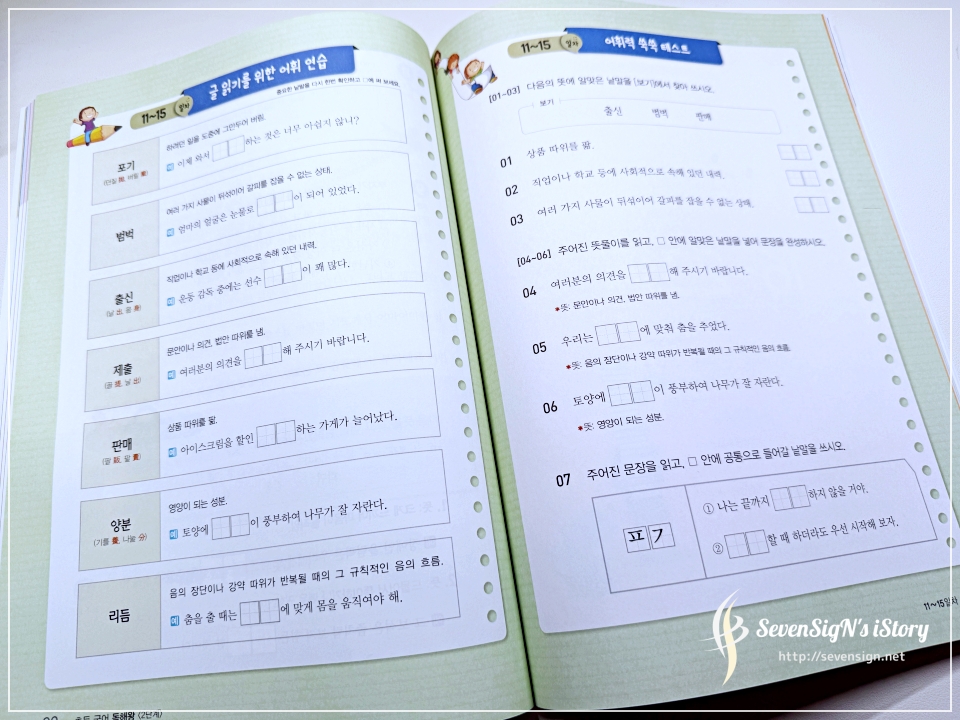 11~15 일차
글 읽기를 위한 어휘 연습
중요한 낱말을 다시 한번 확인하고 □에 써 보세요.
포기
(던질 抛, 버릴 棄)
하려던 일을 도중에 그만두어 버림.
예 이제 와서 □□하는 것은 너무 아쉽지 않니?
범벅
여러 가지 사물이 뒤섞이어 갈피를 잡을 수 없는 상태.
예 엄마의 얼굴은 눈물로 □□이 되어 있었다.
출신
(날 出, 몸 身)
직업이나 학교 등에 사회적으로 속해 있던 내력.
예 운동 감독 중에는 선수 □□이 꽤 많다.
제출
(끌 提, 날 出)
문안이나 의견, 법안 따위를 냄.
예 여러분의 의견을 □□해 주시기 바랍니다.
판매
(팔 販, 팔 賣)
상품 따위를 팖.
예 아이스크림을 할인 □□하는 가게가 늘어났다.
양분
(기를 養, 나눌 分)
영양이 되는 성분.
예 토양에 □□이 풍부하여 나무가 잘 자란다.
리듬
음의 장단이나 강약 따위가 반복될 때의 그 규칙적인 음의 흐름.
예 춤을 출 때는 □□에 맞게 몸을 움직여야 해.
초등 국어 독해왕 (2단계)
11~15 일차
어휘력 쑥쑥 테스트
[01~03] 다음의 뜻에 알맞은 낱말을 [보기]에서 찾아 쓰시오.
보기
출신 범벅 판매
01 상품 따위를 팖.
02 직업이나 학교 등에 사회적으로 속해 있던 내력.
03 여러 가지 사물이 뒤섞이어 갈피를 잡을 수 없는 상태.
[04~06] 주어진 뜻풀이를 읽고, □ 안에 알맞은 낱말을 넣어 문장을 완성하시오.
04 여러분의 의견을 □□해 주시기 바랍니다.
*뜻: 문안이나 의견, 법안 따위를 냄.
05 우리는 □□에 맞춰 춤을 추었다.
*뜻: 음의 장단이나 강약 따위가 반복될 때의 그 규칙적인 음의 흐름.
06 토양에 □□이 풍부하여 나무가 잘 자란다.
*뜻: 영양이 되는 성분.
07 주어진 문장을 읽고, □ 안에 공통으로 들어갈 낱말을 쓰시오.
ㅍㄱ
① 나는 끝까지 □□하지 않을 거야.
② □□할 때 하더라도 우선 시작해 보자.
11~15일차
SevenSigN's iStory
http://sevensign.net